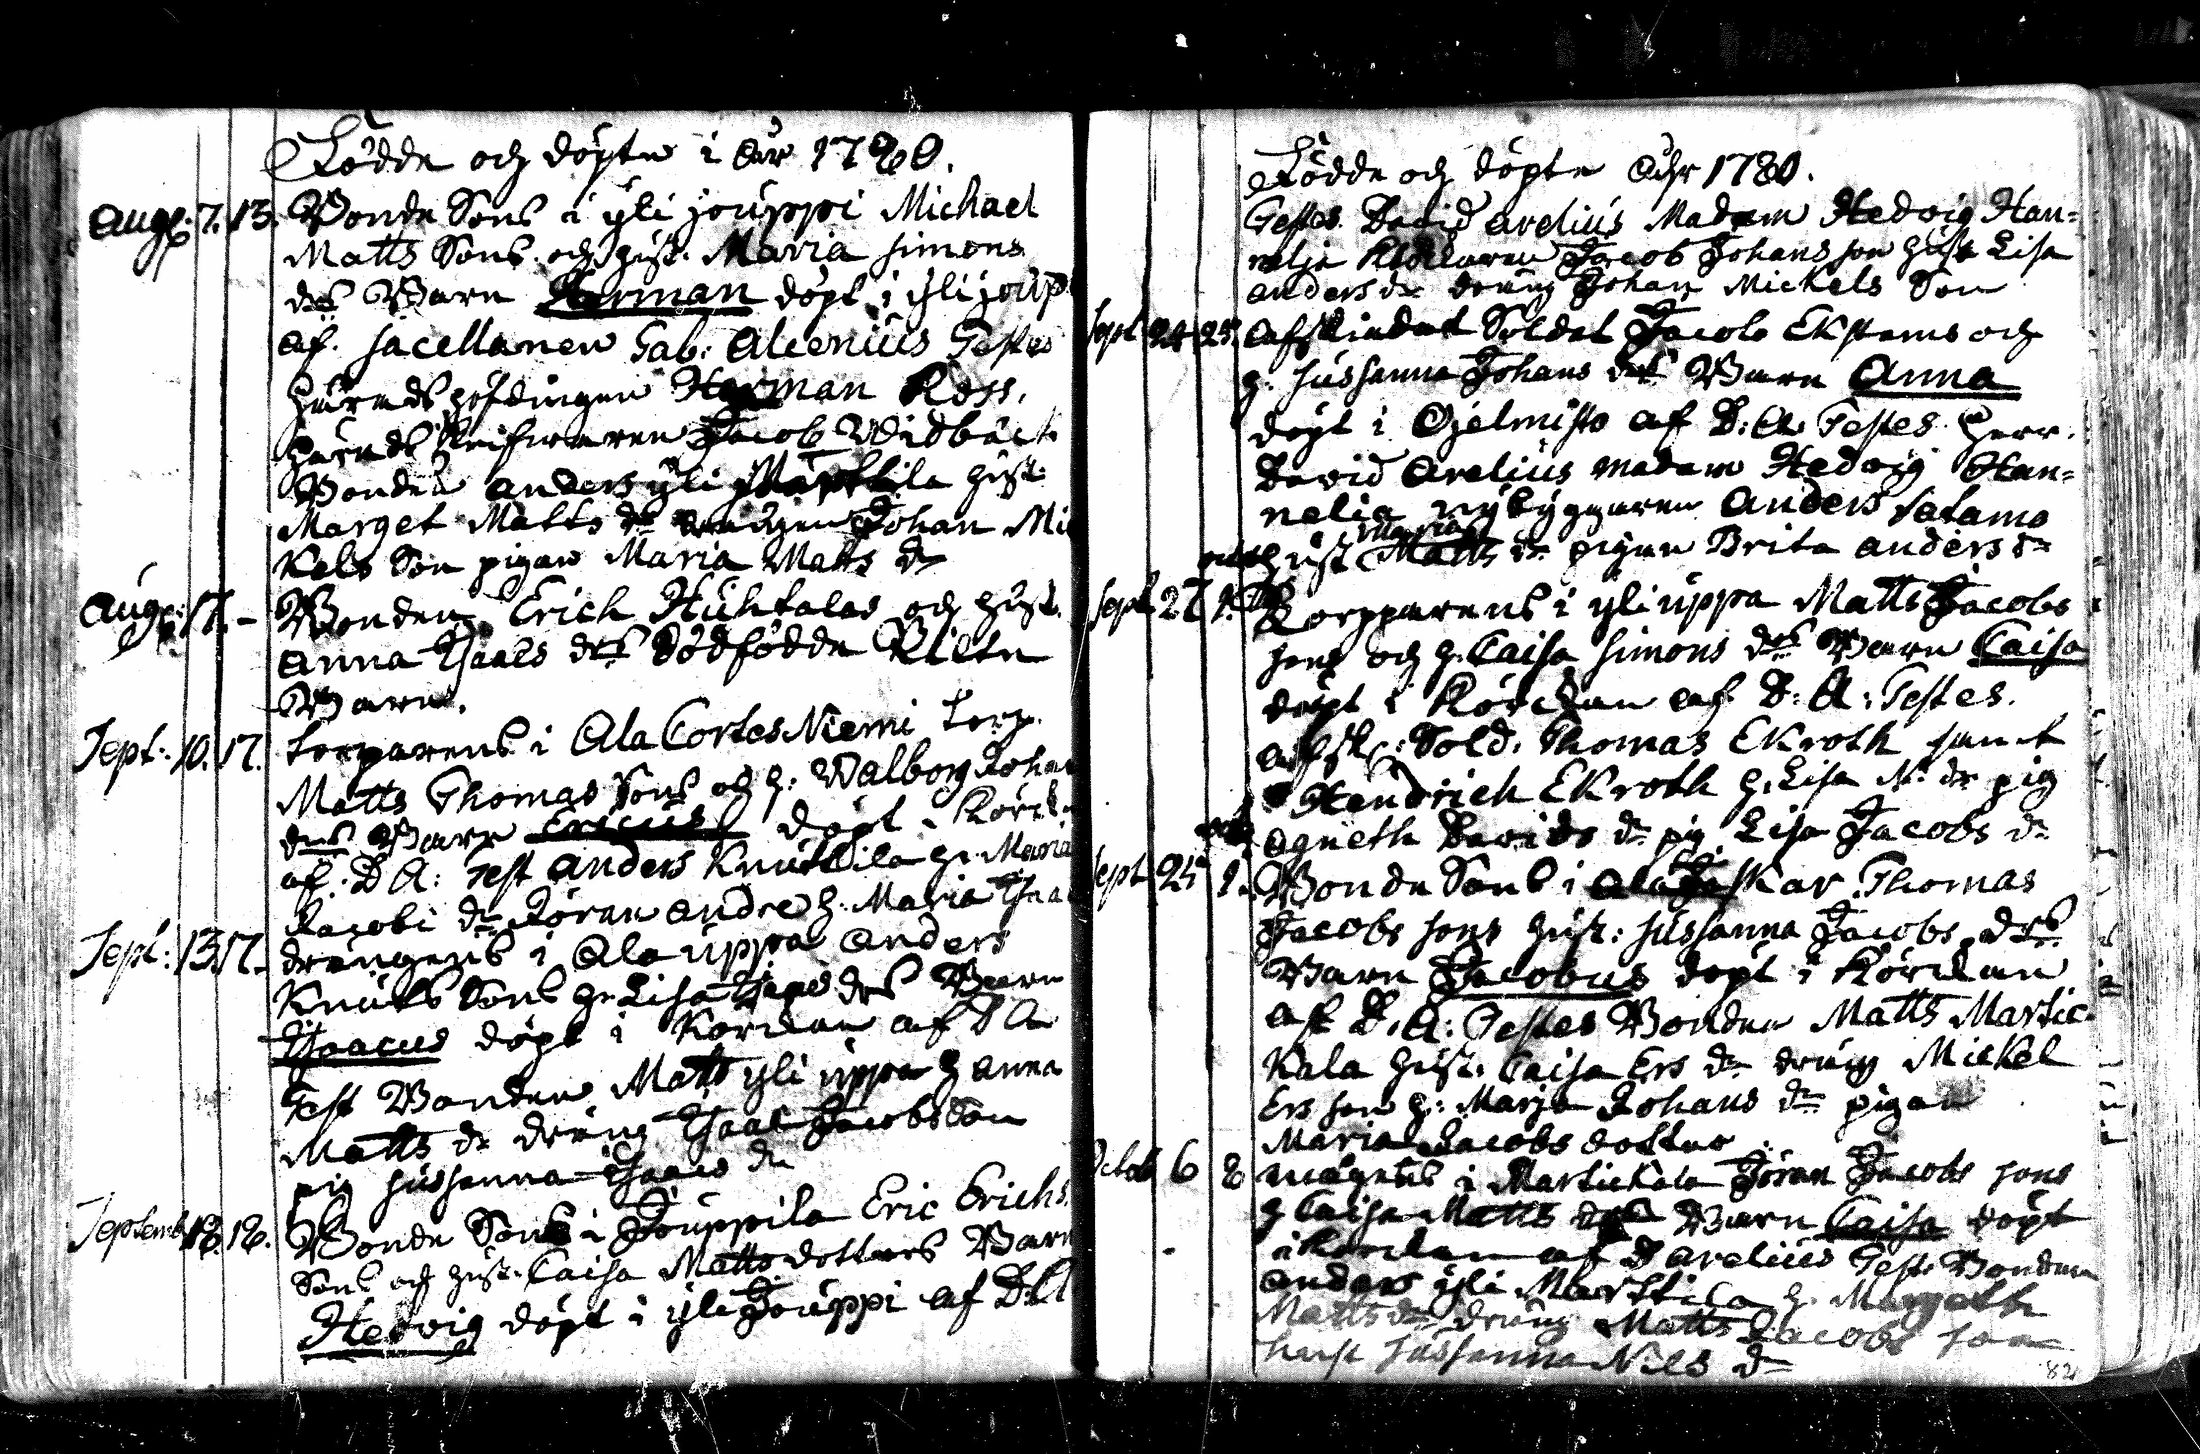 Födde och döpte i åår 1780.
Aug: 7. 13. Bonde Sons i yli jouppi Michael
Matts Sons och hust. Maria simons
drs Barn Herman döpt i yli joup
af. sacellanen Gab: Alcenius Testes
häradshöfdingen Herman Ross.
häradsskrifwaren Jacob Widbäck
Bonden anders yli Märttila hust:
Marget Matts dr Johan Mic
Kels Son pigan Maria Matts dr
Aug: 17. - Bonden Erich Huhtalas och hust.
Anna Isaacs drs dödfödde Barn.
Sept: 10. 17. torparens i Ala Cortes Niemi torp.
Matts Thomas Sons och h: Walborg Johans
drs Barn Ericus döpt i Körck.
af. D A: Test anders Knuttila h. Maria
Jacobi dr Jöran andre h. Maria Isaac
Sept: 13. 17. drängens i Ala uppa anders
Knuts Sons h. Lisa Isaacs drs Barn
Isaacus döpt i Körckan af D A
Test Bonden Matts yli uppa h anna
Matts dr dräng Isaac Jacobsson
pig sussanna Isaacs dr
Septemb 18. 18. Bonde Sons i Jouppila Eric Erichs
Sons och hust. Caisa Matts dotters Barn
Hedvig döpt i yli Jouppi af DA
Födde och döpte Åhr 1780.
Testes. David Arelius Madam Hedvig Han=
nelia Klockaren Jacob Johansson hust Lisa
anders dr dräng Johan Mickels Son
Sept 24 25. afskiedat Soldat Jacob Ekstams och
h. sussanna Johans drs Barn Anna
döpt i Ojelmisto af D: A. Testes. herr.
David Arelius madam Hedvig Han=
nelia nybyggaren Anders satamo
hust Maria Matts dr pigan Brita anders dr
Sept. 27 1. Torpparens i yli uppa Matts Jacobs
sons och h. Caisa simons drs Barn Caisa
döpt i Körckan af D: A: Testes.
afsk: Sold. Thomas Ekroth samt
Hendrich Ekroth h. Lisa M: dr pig
agneth Davids dr pig Lisa Jacobs dr
Sept 25 1. Bonde Sons i ala Thomas
Jacobs sons hust: sussanna Jacobs drs
Barn Jacobus döpt i Körckan
af D. A: Testes Bonden Matts Martic
Kala hust. Caisa Ers dr dräng Mickel
Ers son h: Marja Johans dr pigan
Maria Jacobs dotter
Octob 6 8 mågens i Martickala Jöran Jacobs sons
h Caisa Matts drs Barn Caisa döpt
i Körckan af D Arelius Test. Bonden
anders yli Märttila h. Margeth
Matts dr dräng Matts Jacobs son
hust sussanna Nils dr
82